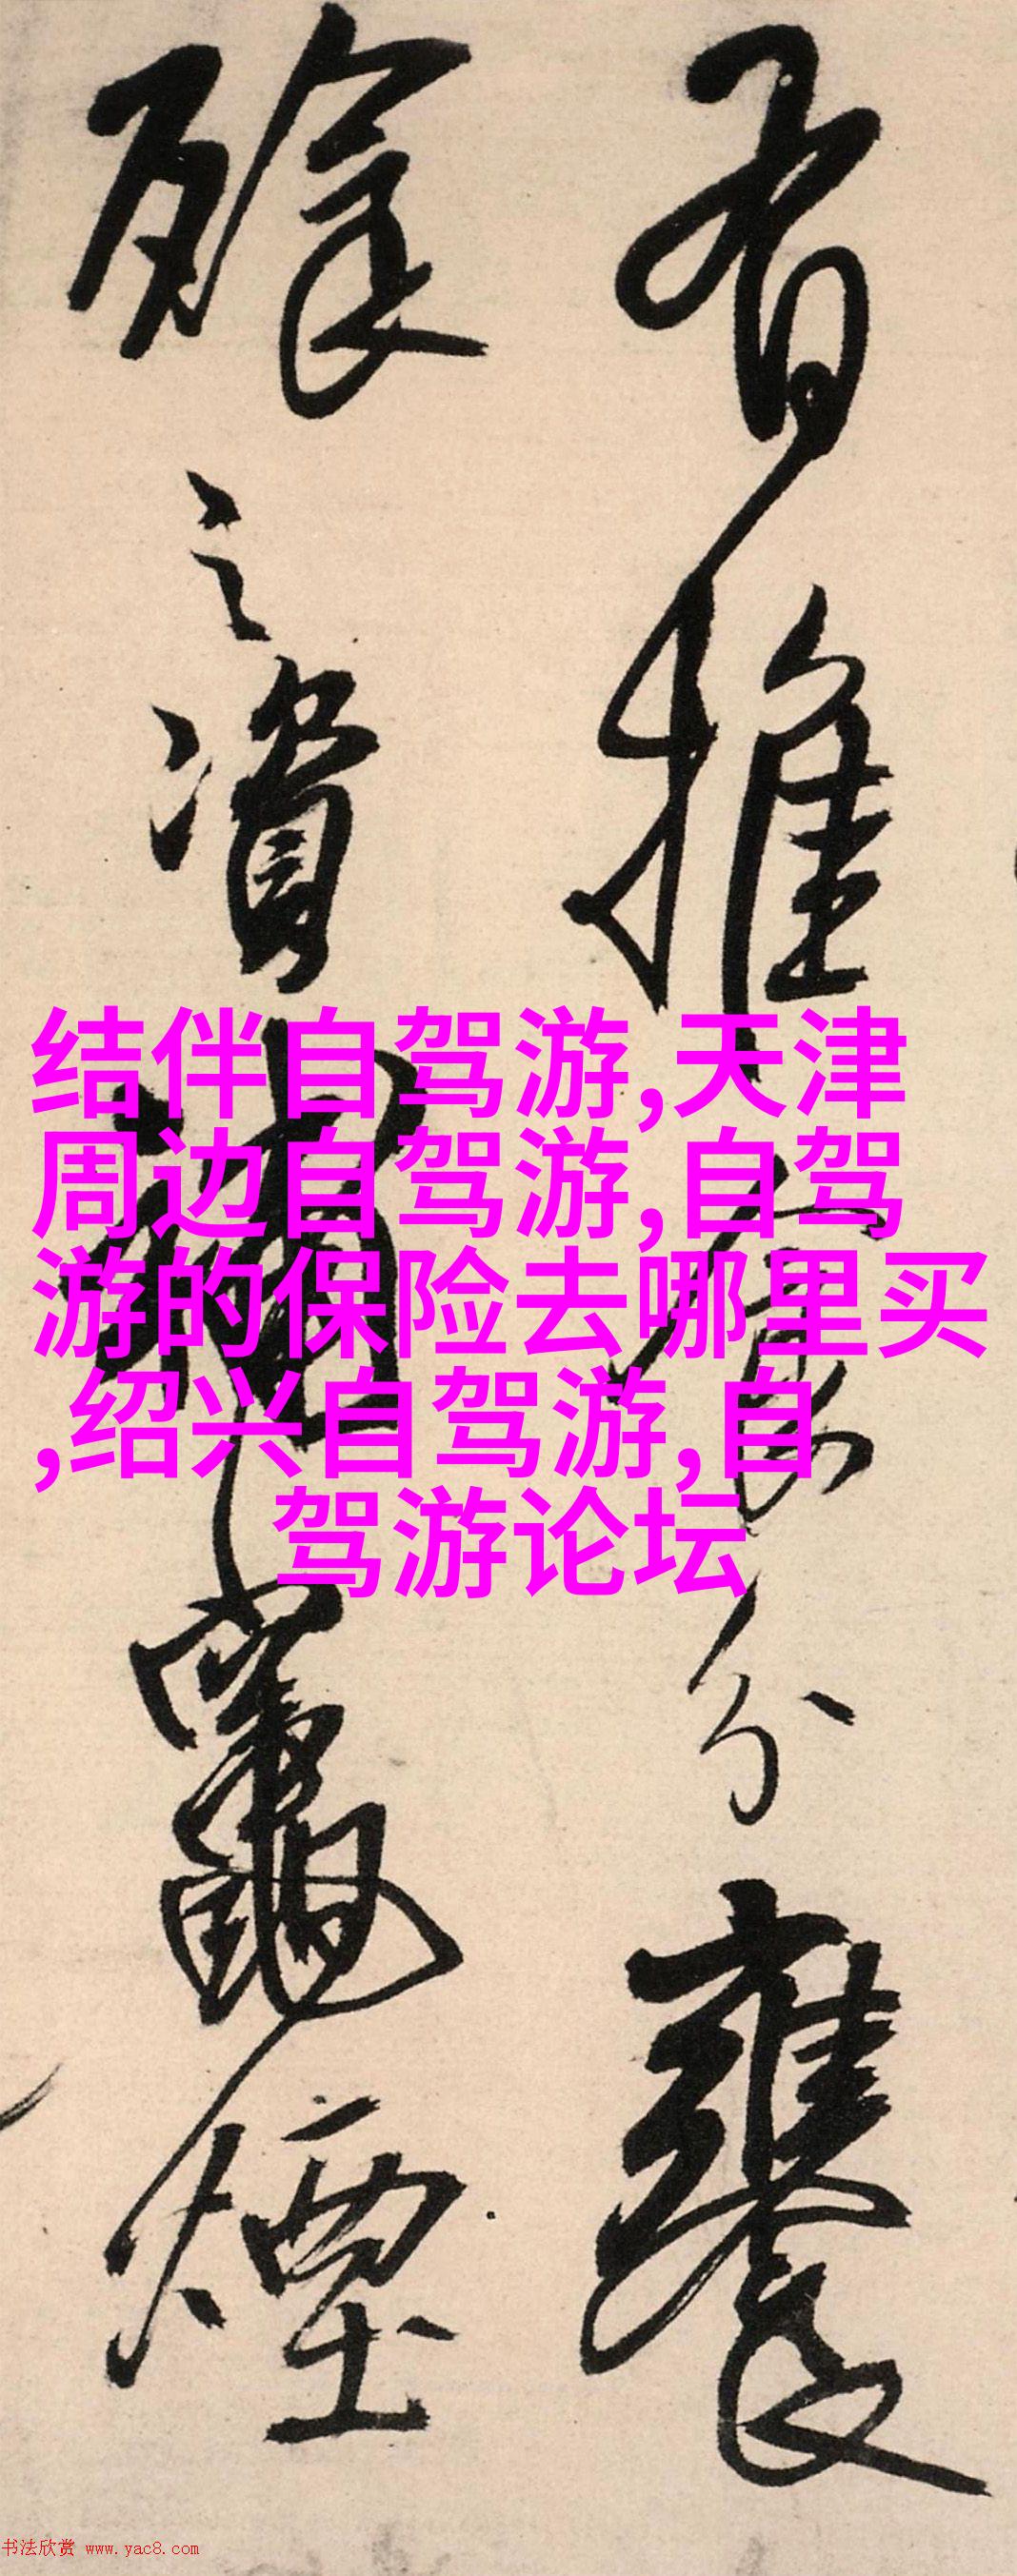 有推分饔
之資竈煙
结伴自驾游,天津
周边自驾游,自驾
游的保险去哪里买
,绍兴自驾游,自
驾游论坛
书法欣赏 www.yac8.com